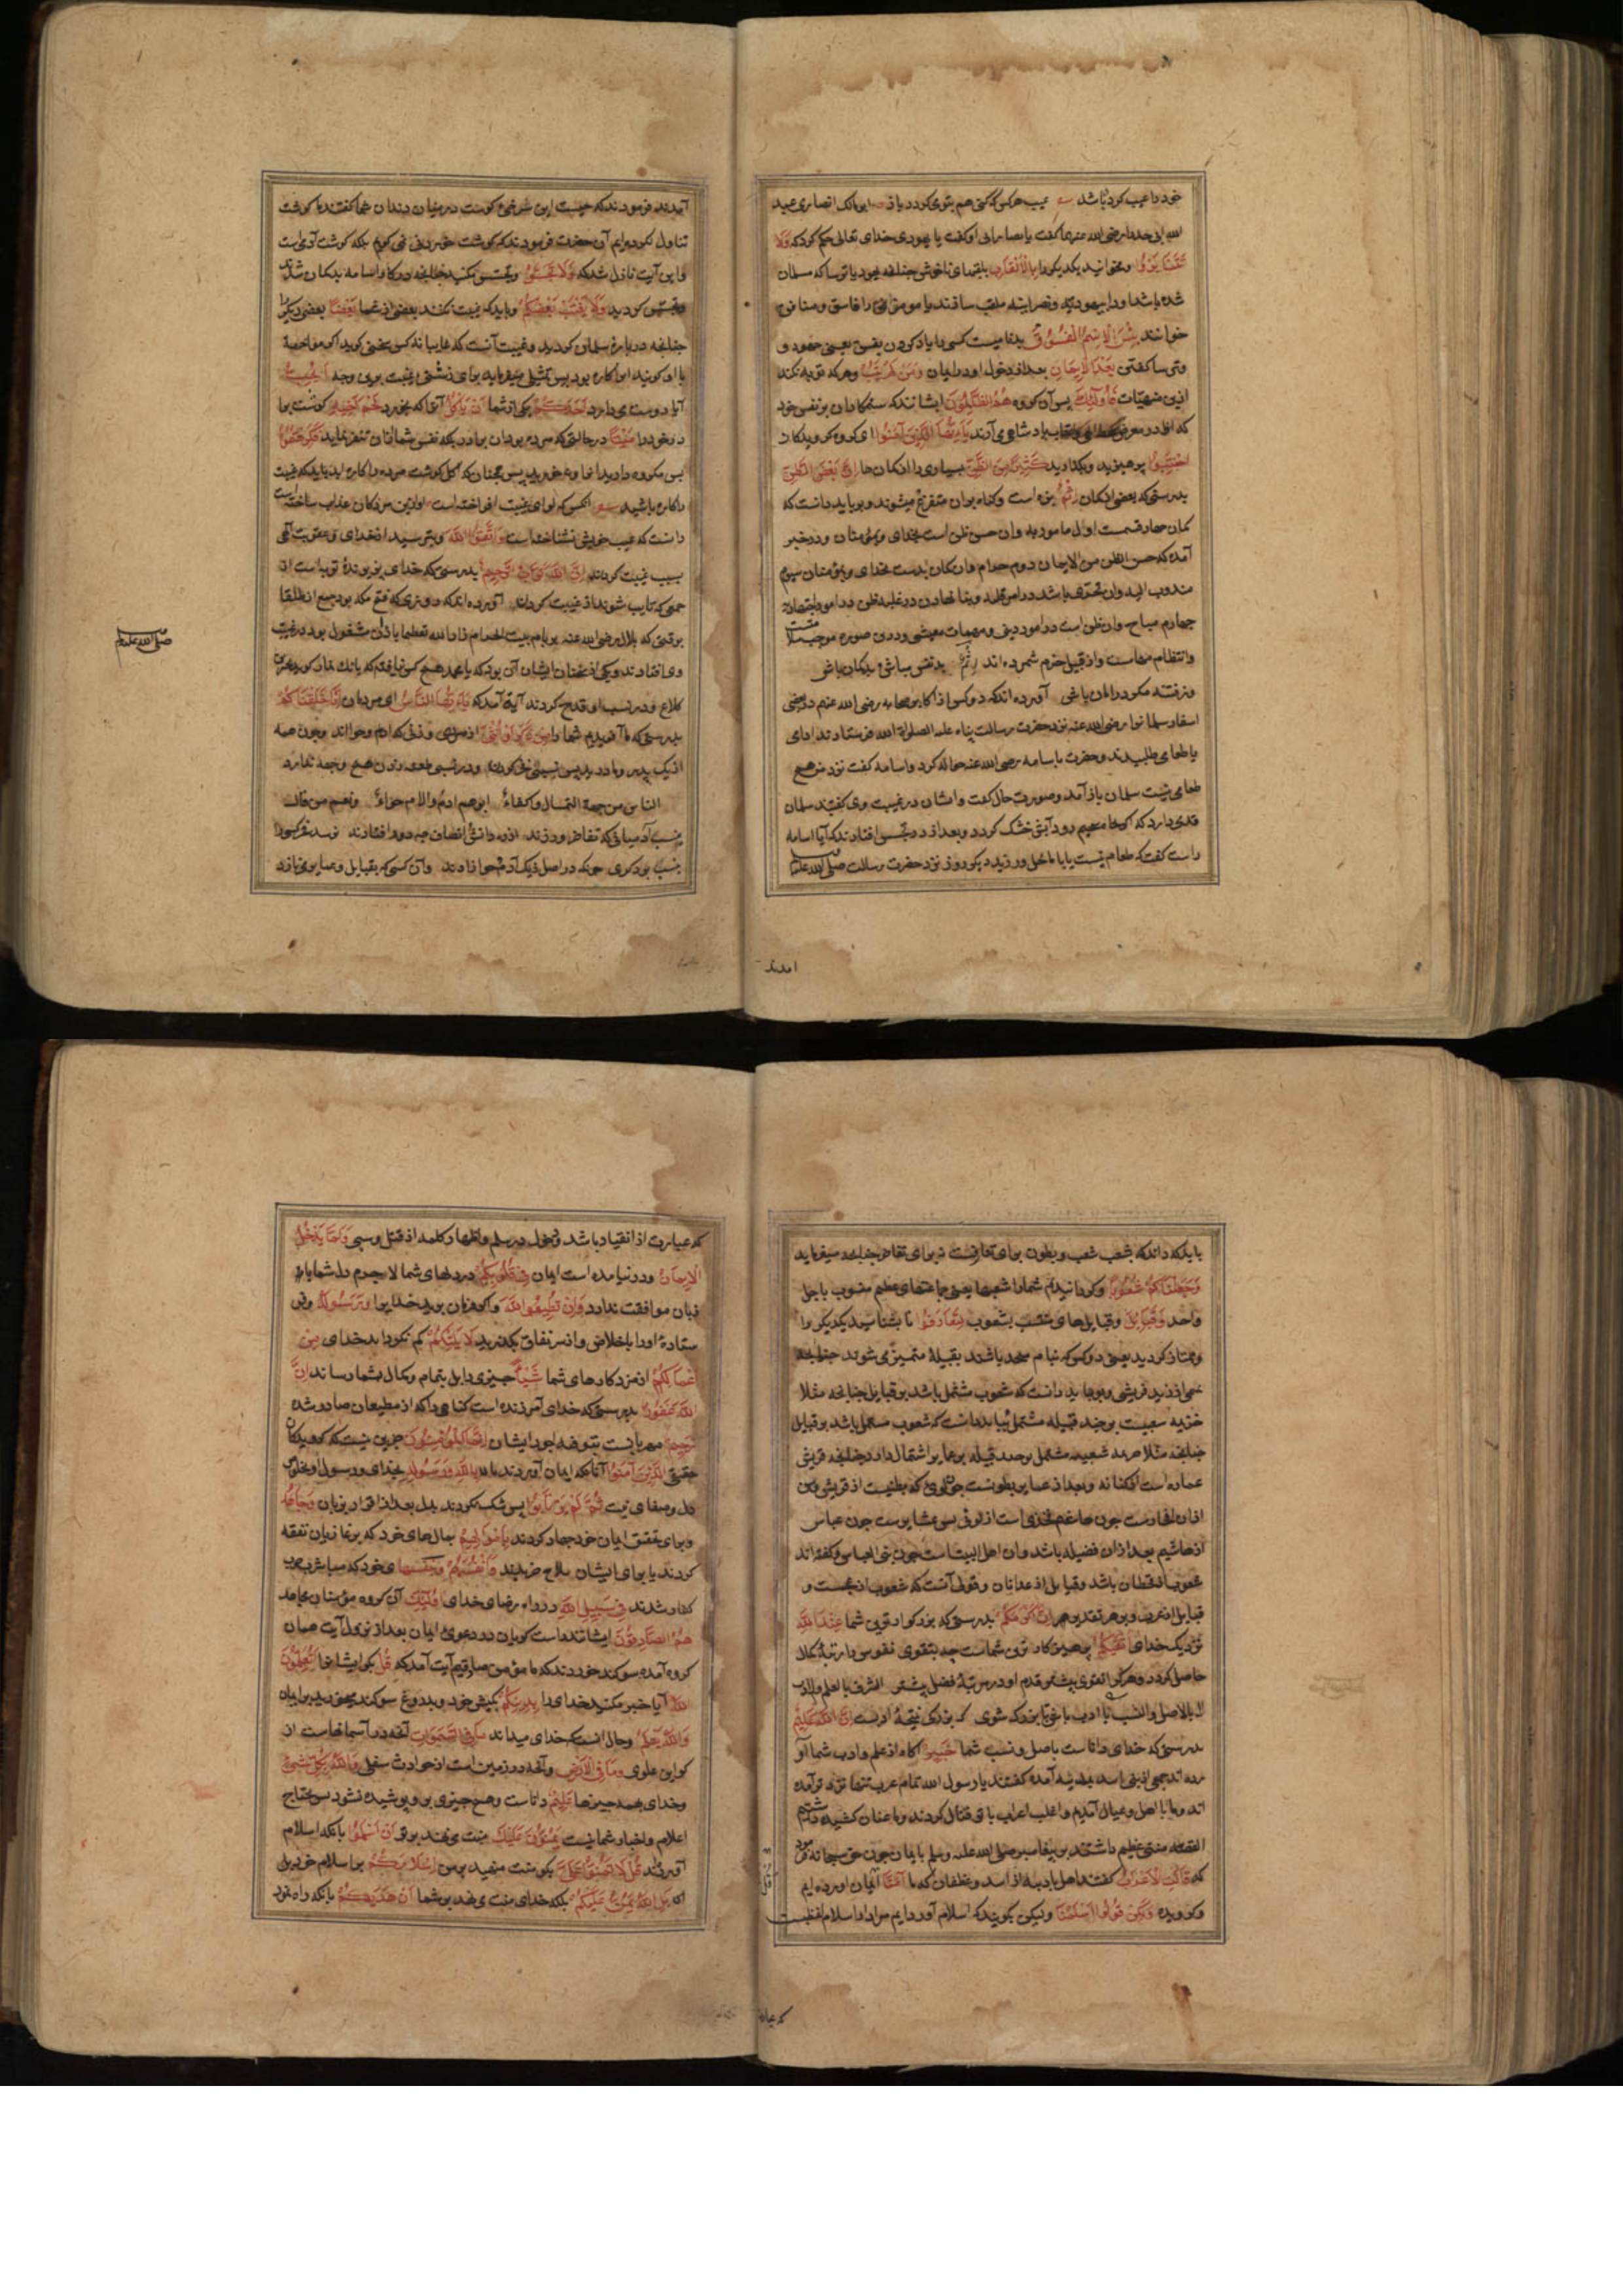 خود را عیب کرد باشد عیب هر کس که کنی هم بتوی کردد باز ابو مالک انصاری عبد
الله ابی حدرد رضی الله عنهما کفت یا نصارانی او کفت یا یهودی خدای تعالی حکم کرد که وَلَا
تَنَابَزُوا ومخوانید یکدیکر را بِالْاَلْقَابِ بلقبهای ناخوش چنانچه یهود یا ترسا که مسلمان
شده باشد اورا بیهودیه ونصرانیه ملقب سازند یا مومنی را فاسق ومنافق
خوانند بِئْسَ الْاِسْمُ الْفُسُوقُ بدنامیست کسی را یاد کردن بفسق یعنی جهود و
ترسا کفتن بَعْدَ الْاِیمَانِ بعد از دخول او در ایمان وَمَنْ لَمْ یَتُبْ وهر که توبه نکند
ازین منهیّات فَاُولٰئِکَ پس آن کروه هُمُ الظَّالِمُونَ ایشانند که ستمکاران بر نفس خود
که اورا در معرض می آرند یَا اَیُّهَا الَّذِینَ آمَنُوا ای کروه کرویدکان
اجْتَنِبُوا پرهیزید وبکذارید کَثِیرًا مِنَ الظَّنِّ بسیاری را از کمان ها اِنَّ بَعْضَ الظَّنِّ
بدرستی که بعضی از کمان اِثْمٌ بزه است وکناه بران متفرع میشوند و بباید دانست که
کمان چهار قسمت اول مامور به وان حسن ظن است بخدای وبمؤمنان ودر خبر
آمده که حسن الظن من الایمان دوم حرام وان کمان بدست بخدای وبمؤمنان سیوم
مندوب الیه وان تحرّی باشد در امر قبله وبنا نهادن در غلبه ظن در امور اجتهادیه
چهارم مباح وان ظن است در امور دینی ومهمات معیشی ودرین صوره موجب سلامت
وانتظام مهماست واز قبیل حزم شمرده اند بد نفس مباش وبدکمان باش
وز فتنه مکر در امان باش آورده اند که دو کس از کابر صحابه رضی الله عنهم در بعضی
اسفار سلمان را رضی الله عنه نزد حضرت رسالت پناه علیه الصلوة الله فرستادند ادای
یا طعامی طلبیدند وحضرت باسامه رضی الله عنه حواله کرد واسامه کفت نزد من هیچ
طعامی نیست سلمان باز آمد وصورت حال کفت وایشان در غیبت وی کفتند سلمان
قدمی دارد که اکر بچاه سمیحه رود آبش خشک کردد وبعد از در تجسس افتادند که آیا اسامه
راست کفت که طعام نیست یا با ما بخل ورزید دیکر روز نزد حضرت رسالت صلی الله علیه
امدند
آمدند فرمودند که چیست این سرخی کوشت در میان دندان شما کفتند ما کوشت
تناول نکرده ایم آن حضرت فرمودند که کوشت خوردنی نمی کویم بلکه کوشت آدمی است
واین آیت نازل شد که وَلَا تَجَسَّسُوا وتجسس مکنید چنانچه در کار اسامه بدکمان شدند
وتجسس کردید وَلَا یَغْتَبْ بَعْضُکُمْ وباید که غیبت نکنند بعضی از شما بَعْضًا بعضی دیکر را
چنانچه در بارهٔ سلمان کردید وغیبت آنست که غایبانه کسی سخنی کوید اکر مواجهه
با او کویند اورا کاره بود پس تمثیل میفرماید برای زشتی غیبت بدین وجه اَیُحِبُّ
آیا دوست می دارد اَحَدُکُمْ یکی از شما اَنْ یَاْکُلَ آنرا که بخورد لَحْمَ اَخِیهِ کوشت برا
در خود را مَیْتًا در حالتی که مرده بود ان برادر بلکه نفس شما از ان تنفر نماید فَکَرِهْتُمُوهُ
پس مکروه دارید انرا ونخورید پس همچنان که اکل کوشت مرده را کاره اید باید که غیبت
را کاره باشید انکس که لوای غیبت افراخته است او از تن مردکان غذا ساخته است
دانست که عیب خویش نشناخته است وَاتَّقُوا اللهَ وبترسید از خدای وعقوبت آلهی
بسبب غیبت کردن اِنَّ اللهَ تَوَّابٌ رَحِیمٌ بدرستی که خدای پذیرندهٔ توبه است از
جمعی که تایب شوند از غیبت کردن آورده اند که در روزی که فتح مکه بود جمع از طلقا
بر وقتی که بلال رضی الله عنه بر بام بیت الحرام زادها الله تعظیما باذان مشغول بود در غیبت
وی افتادند ویکی از سخنان ایشان آن بود که یا محمد هیچ کس نیافته که بانک نماز کوید بجز این
کلاغ ودر نسب او قدح کردند آیة آمد که یَا اَیُّهَا النَّاسُ ای مردمان اِنَّا خَلَقْنَاکُمْ
بدرستی که ما آفریدیم شما را مِنْ ذَکَرٍ وَاُنْثٰی از مردی وزنی که ادم وحوااند وچون همه
از یک پدر ومادرید پس نسبتی نفر کردن ودر نسب طعنه زدن هیچ وجهه ندارد
الناس من جهة التمثال واکفاء ابوهم ادم والام حواء
نسب آدمیانی که تفاخر ورزند از ره دانش انصاف چه دور افتادند نرسد فخر کسی را
بنسب بر دکری چونکه در اصل زیک آدم وحوا زادند وآن کسی که بقبایل وعشایر می نازد
صلی الله علیه وسلم
باید که داند که شعب شعب وبطون برای تعارفست نه برای تفاخر چنانچه میفرماید
وَجَعَلْنَاکُمْ شُعُوبًا وکردانیدیم شما را شعبها یعنی جماعتهای عظیم منسوب باصل
واحد وَقَبَائِلَ وقبایل های منشعب بشعوب لِتَعَارَفُوا تا بشناسید یکدیکر را
وممتاز کردید یعنی دو کس که بنام متحد باشند بقبیلهٔ متمیز می شوند چنانچه
وبباید دانست که شعوب مشتمل باشد بر قبایل چنانچه مثلا
خزیمه شعبیست بر چند قبیله مشتمل
چنانچه
عماره است الکنانه وبعد از عمایر بطونست چون لوی که بطنیست از قریش وپس
ازان افخاذست چون هاشم فخذی است از لوی پس عشایرست چون عباس
از هاشم بعد ازان فصیله باشد وان اهل البیت است چون بنی العباس وکفته اند
شعوب از قحطان باشد وقبایل از عدنان وقولی آنست که شعوب از عجمست و
قبایل از عرب وبر هر تقدیر اِنَّ اَکْرَمَکُمْ بدرستی که بزرکوارترین شما عِنْدَ اللهِ
نزدیک خدای اَتْقٰیکُمْ پرهیزکارترین شماست چه بتقوی نفوس را رتبهٔ کمال
حاصل کردد وهر که را تقوی بیشتر قدم او در مرتبهٔ فضل پیشتر الشرف بالعلم والادب
لا بالاصل والنسب با ادب باش تا بزرک شوی که بزرکی نتیجهٔ ادبست اِنَّ اللهَ عَلِیمٌ
بدرستی که خدای داناست باصل ونسب شما خَبِیرٌ آکاه از علم وادب شما آو
رده اند جمعی از بنی اسد بمدینه آمده کفتند یا رسول الله تمام عرب تنها نزد تو آمده
اند وما با اهل وعیال آمدیم واغلب اعراب با تو قتال کردند وما عنان کشیده داشتیم
القصه منتی عظیم داشتند بر پیغامبر صلی الله علیه وسلم بایمان چون حق سبحانه فرمود
که قَالَتِ الْاَعْرَابُ کفتند اهل بادیه از اسد وغطفان که ما آمَنَّا ایمان اورده ایم
وکرویده وَلٰکِنْ قُولُوا اَسْلَمْنَا ولیکن بکویید که اسلام آورده ایم مراد از اسلام لفظیست
که عبارت
که عبارت از انقیاد باشد ودخول در سلم واظهار کلمه از قتل وسبی وَلَمَّا یَدْخُلِ
الْاِیمَانُ ودر نیامده است ایمان فِی قُلُوبِکُمْ در دلهای شما لاجرم دل شما با
زبان موافقت ندارد وَاِنْ تُطِیعُوا اللهَ واکر فرمان برید خدایرا وَرَسُولَهُ وفر
ستادهٔ اورا باخلاص واز سر نفاق بکذرید لَا یَلِتْکُمْ کم نکرداند خدای مِنْ
اَعْمَالِکُمْ از مزد کارهای شما شَیْئًا چیزی را بل بتمام وکمال بشما رساند اِنَّ
اللهَ غَفُورٌ بدرستی که خدای آمرزنده است کناهی را که از مطیعان صادر شده
رَحِیمٌ مهربانست بتوفیه اجور ایشان اِنَّمَا الْمُؤْمِنُونَ جزین نیست که کرویدکان
حقیقی الَّذِینَ آمَنُوا آنانکه ایمان آوردند بِاللهِ وَرَسُولِهِ بخدای ورسول او بخلوص
دل وصفای نیت ثُمَّ لَمْ یَرْتَابُوا پس شک نکردند بدل بعد از اقرار بزبان وَجَاهَدُوا
وبرای تحقق ایمان خود جهاد کردند بِاَمْوَالِهِمْ بمال های خود که بر غازیان نفقه
کردند یا برای ایشان سلاح خریدند وَاَنْفُسِهِمْ وبنفسهای خود که مباشر حرب
کفار شدند فِی سَبِیلِ اللهِ در راه رضای خدای اُولٰئِکَ آن کروه مؤمنان مجاهد
هُمُ الصَّادِقُونَ ایشانند راست کویان در دعوی ایمان بعد از نزول آیت همان
کروه آمده سوکند خوردند که ما مؤمن صادقیم آیت آمد که قُلْ بکو ایشانرا اَتُعَلِّمُونَ
اللهَ آیا خبر میکنید خدای را بِدِینِکُمْ بکیش خود وبدروغ سوکند میخورید بر ایمان
وَاللهُ یَعْلَمُ وحال انست که خدای میداند مَا فِی السَّمٰوَاتِ آنچه در آسمانهاست از
کواین علوی وَمَا فِی الْاَرْضِ وآنچه در زمین است از حوادث سفلی وَاللهُ بِکُلِّ شَیْءٍ
وخدای بهمه چیزها عَلِیمٌ داناست وهیچ چیزی برو پوشیده نشود پس محتاج
اعلام واخبار شما نیست یَمُنُّونَ عَلَیْکَ منت می نهند بر تو اَنْ اَسْلَمُوا بانکه اسلام
آوردند قُلْ لَا تَمُنُّوا عَلَیَّ بکو منت منهید بر من اِسْلَامَکُمْ بر اسلام خود بل
که بَلِ اللهُ یَمُنُّ عَلَیْکُمْ بلکه خدای منت می نهد بر شما اَنْ هَدٰیکُمْ بانکه راه نمود